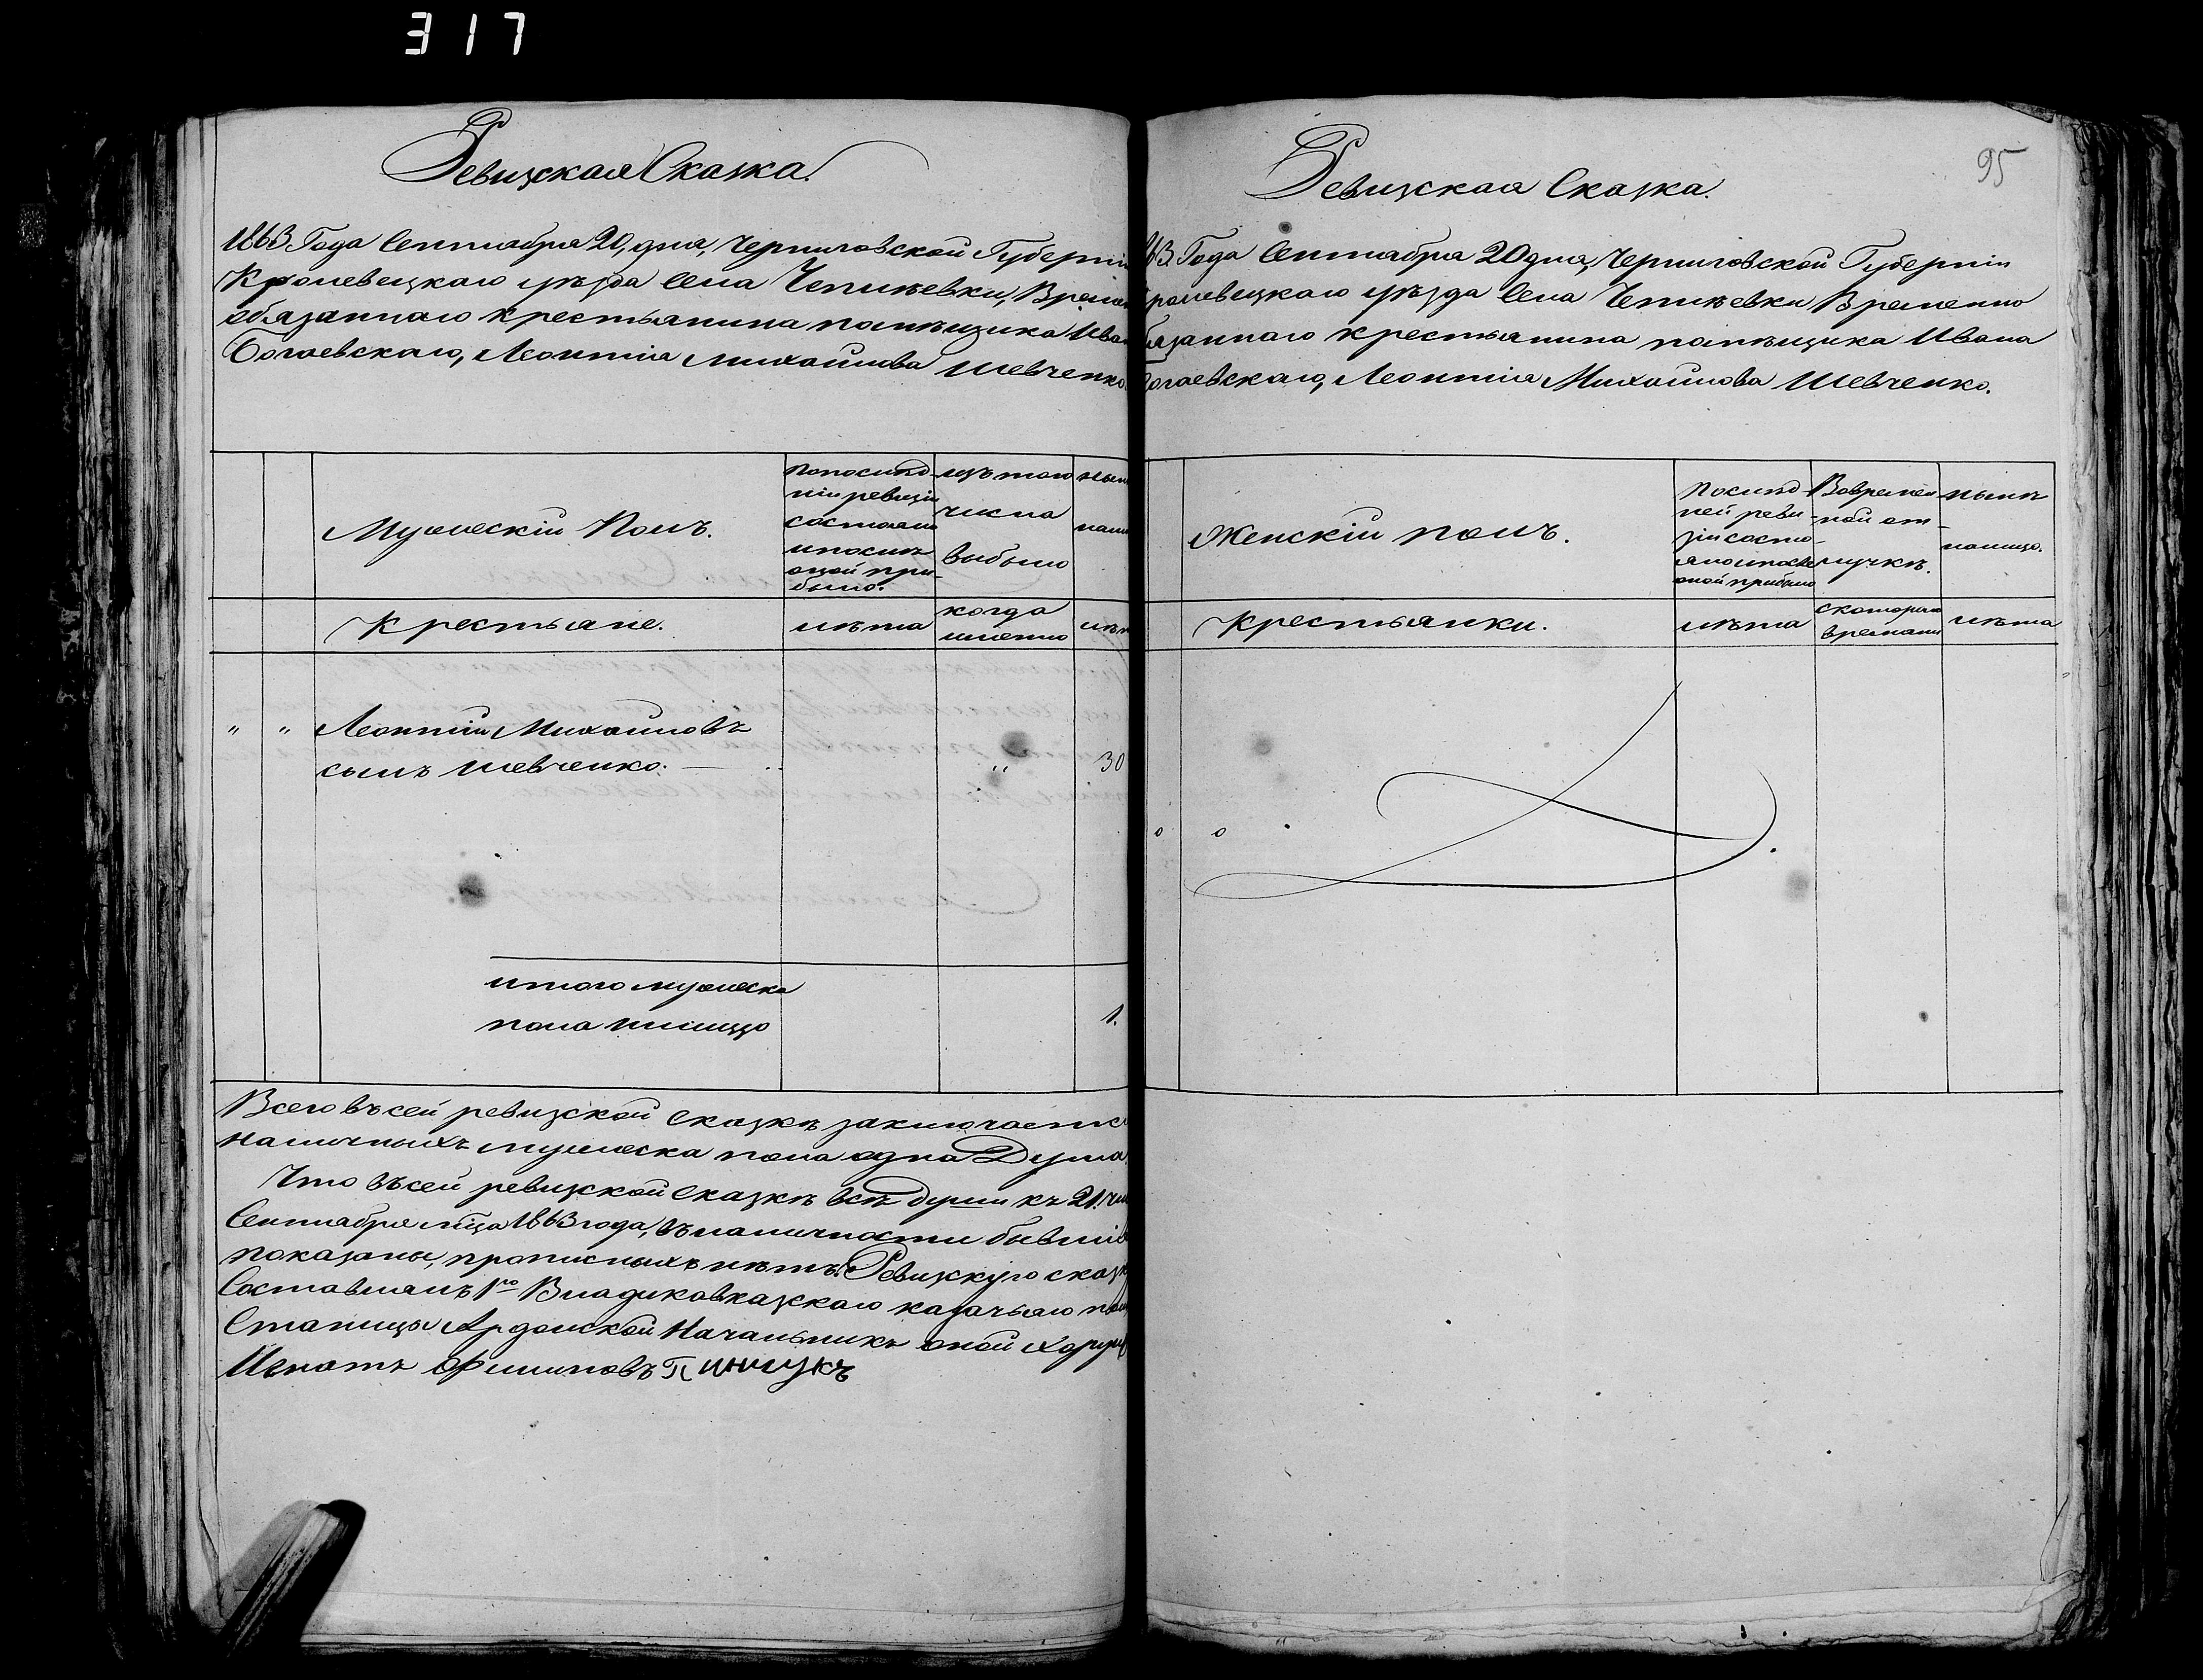 317
Ревизская Сказка.
1863 Года Сентября 20, дня, Черниговской Губерніи
Кролевецкаго уѣзда Села Чепиѣевки, Времен
обязаннаго крестьянина помѣщика Иван
Богаевскаго, Леонтія Михайлова Шевченко.
Мужескій Полъ.
по послѣд-
ніи ревизіи
состояло
и послѣ
оной при-
было.
изъ того
числа
выбыло
нынѣ
нали
Крестьяне.
лѣта
когда
именно
лѣт
" " Леонтій Михайловъ
сынъ Шевченко. — " 30
итого мужеска
пола налицо 1.
Всего въ сей ревизской сказкѣ заключаетс
наличныхъ мужеска пола одна Душа.
Что въ сей ревизской сказкѣ всѣ души къ 21. чи
Сентября мѣца 1863 года, въ наличности бывшіе
показаны, прописныхъ нѣтъ. Ревизкую сказк
Составлялъ 1го Владикавказскаго казачьяго пол
Станицы Ардонской Начальникъ оной Хорунж
Игнатъ Филиповъ
95
Ревизская Сказка.
863. Года Сентября 20 дня, Черниговской Губерніи
ролевецкаго уѣзда Села Чепиѣевки Временно
бязаннаго крестьянина помѣщика Ивана
огаевскаго, Леонтія Михайлова Шевченко.
Женскій полъ.
послѣд-
ней реви-
зіи состо-
яло и послѣ
оной прибыло
Во времен-
ной от-
лучкѣ.
нынѣ
налицо.
Крестьянки.
лѣта
с котораго
времени
лѣта